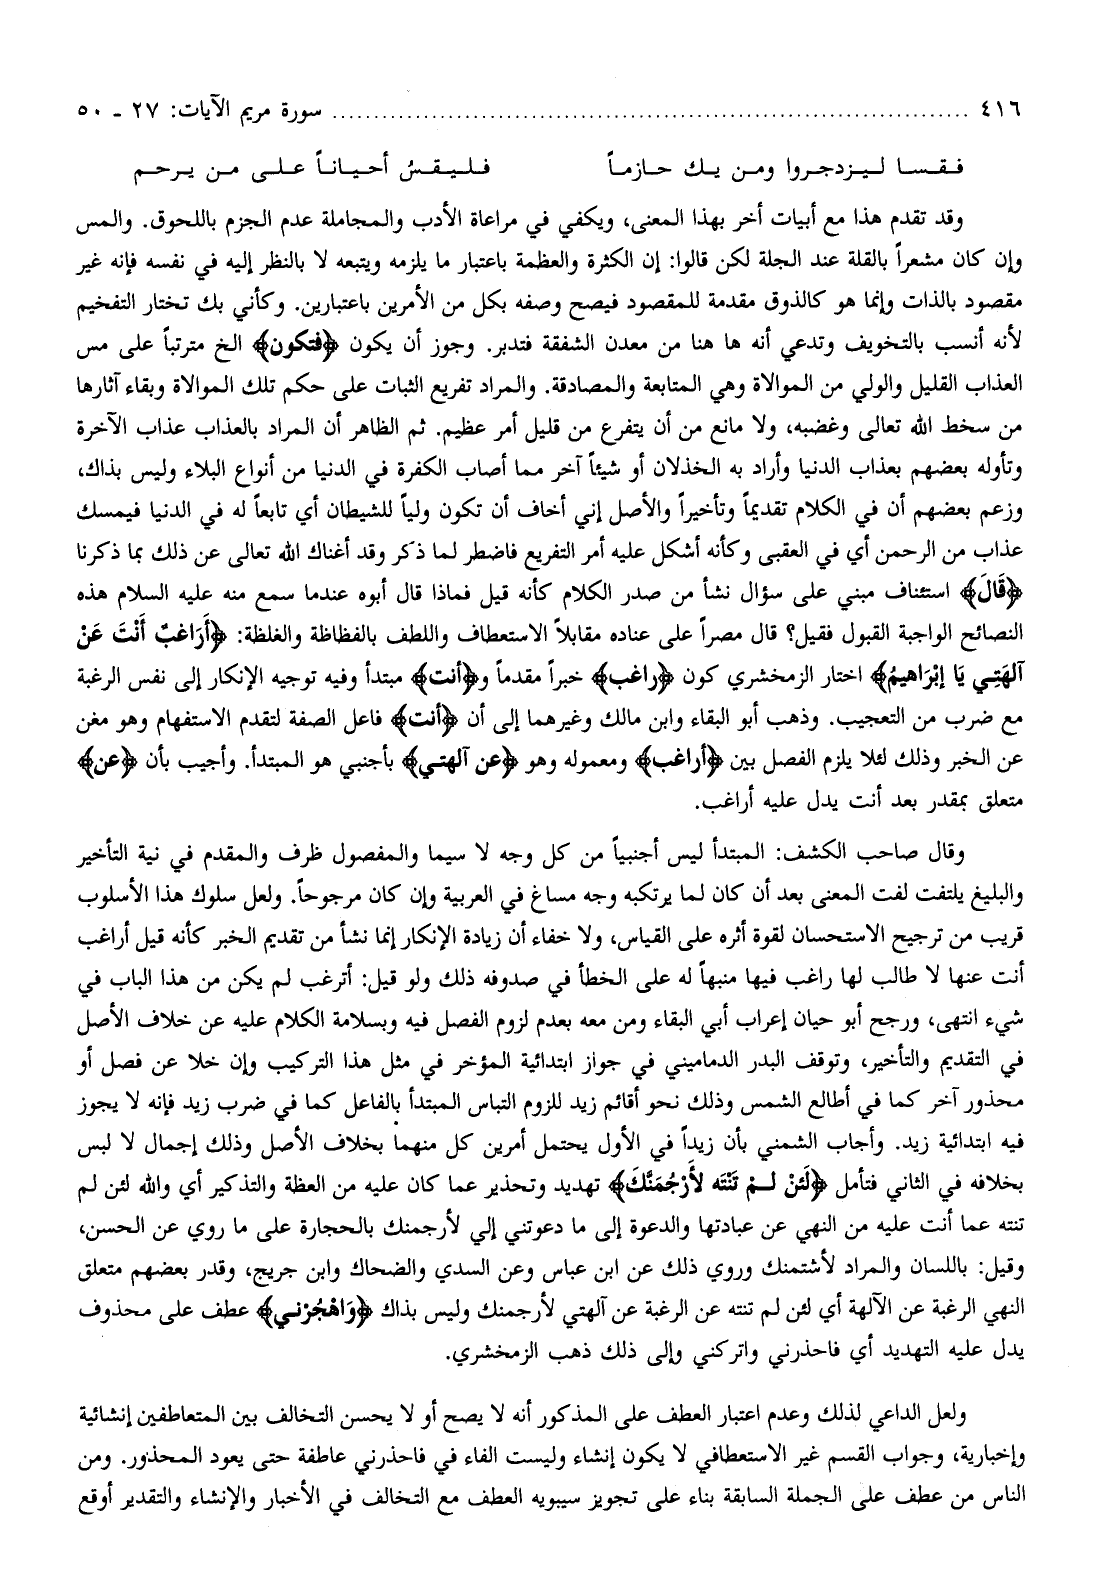 ٤١٦ ........................................................................................ سورة مريم الآيات: ٢٧ ـ ٥٠
فـقـسـا لـيـزدجـروا ومـن يـك حـازمـاً فـلـيـقـسُ أحـيـانـاً عـلـى مـن يـرحـم
وقد تقدم هذا مع أبيات أخر بهذا المعنى، ويكفي في مراعاة الأدب والمجاملة عدم الجزم باللحوق. والمس
وإن كان مشعراً بالقلة عند الجلة لكن قالوا: إن الكثرة والعظمة باعتبار ما يلزمه ويتبعه لا بالنظر إليه في نفسه فإنه غير
مقصود بالذات وإنما هو كالذوق مقدمة للمقصود فيصح وصفه بكل من الأمرين باعتبارين. وكأني بك تختار التفخيم
لأنه أنسب بالتخويف وتدعي أنه ها هنا من معدن الشفقة فتدبر. وجوز أن يكون ﴿فتكون﴾ الخ مترتباً على مس
العذاب القليل والولي من الموالاة وهي المتابعة والمصادقة. والمراد تفريع الثبات على حكم تلك الموالاة وبقاء آثارها
من سخط الله تعالى وغضبه، ولا مانع من أن يتفرع من قليل أمر عظيم. ثم الظاهر أن المراد بالعذاب عذاب الآخرة
وتأوله بعضهم بعذاب الدنيا وأراد به الخذلان أو شيئاً آخر مما أصاب الكفرة في الدنيا من أنواع البلاء وليس بذاك،
وزعم بعضهم أن في الكلام تقديماً وتأخيراً والأصل إني أخاف أن تكون ولياً للشيطان أي تابعاً له في الدنيا فيمسك
عذاب من الرحمن أي في العقبى وكأنه أشكل عليه أمر التفريع فاضطر لما ذكر وقد أغناك الله تعالى عن ذلك بما ذكرنا
﴿قَالَ﴾ استئناف مبني على سؤال نشأ من صدر الكلام كأنه قيل فماذا قال أبوه عندما سمع منه عليه السلام هذه
النصائح الواجبة القبول فقيل؟ قال مصراً على عناده مقابلاً الاستعطاف واللطف بالفظاظة والغلظة: ﴿أَرَاغبٌ أَنْتَ عَنْ
آلهَتِي يَا إبْرَاهيمُ﴾ اختار الزمخشري كون ﴿راغب﴾ خبراً مقدماً و﴿أنت﴾ مبتدأ وفيه توجيه الإنكار إلى نفس الرغبة
مع ضرب من التعجيب. وذهب أبو البقاء وابن مالك وغيرهما إلى أن ﴿أنت﴾ فاعل الصفة لتقدم الاستفهام وهو مغن
عن الخبر وذلك لئلا يلزم الفصل بين ﴿أراغب﴾ ومعموله وهو ﴿عن آلهتي﴾ بأجنبي هو المبتدأ. وأجيب بأن ﴿عن﴾
متعلق بمقدر بعد أنت يدل عليه أراغب.
وقال صاحب الكشف: المبتدأ ليس أجنبياً من كل وجه لا سيما والمفصول ظرف والمقدم في نية التأخير
والبليغ يلتفت لفت المعنى بعد أن كان لما يرتكبه وجه مساغ في العربية وإن كان مرجوحاً. ولعل سلوك هذا الأسلوب
قريب من ترجيح الاستحسان لقوة أثره على القياس، ولا خفاء أن زيادة الإنكار إنما نشأ من تقديم الخبر كأنه قيل أراغب
أنت عنها لا طالب لها راغب فيها منبهاً له على الخطأ في صدوفه ذلك ولو قيل: أترغب لم يكن من هذا الباب في
شيء انتهى، ورجح أبو حيان إعراب أبي البقاء ومن معه بعدم لزوم الفصل فيه وبسلامة الكلام عليه عن خلاف الأصل
في التقديم والتأخير، وتوقف البدر الدماميني في جواز ابتدائية المؤخر في مثل هذا التركيب وإن خلا عن فصل أو
محذور آخر كما في أطالع الشمس وذلك نحو أقائم زيد للزوم التباس المبتدأ بالفاعل كما في ضرب زيد فإنه لا يجوز
فيه ابتدائية زيد. وأجاب الشمني بأن زيداً في الأول يحتمل أمرين كل منهما بخلاف الأصل وذلك إجمال لا لبس
بخلافه في الثاني فتأمل ﴿لَئنْ لَـمْ تَنْتَه لأَرْجُمَنَّكَ﴾ تهديد وتحذير عما كان عليه من العظة والتذكير أي والله لئن لم
تنته عما أنت عليه من النهي عن عبادتها والدعوة إلى ما دعوتني إلي لأرجمنك بالحجارة على ما روي عن الحسن،
وقيل: باللسان والمراد لأشتمنك وروي ذلك عن ابن عباس وعن السدي والضحاك وابن جريج، وقدر بعضهم متعلق
النهي الرغبة عن الآلهة أي لئن لم تنته عن الرغبة عن آلهتي لأرجمنك وليس بذاك ﴿وَاهْجُرْني﴾ عطف على محذوف
يدل عليه التهديد أي فاحذرني واتركني وإلى ذلك ذهب الزمخشري.
ولعل الداعي لذلك وعدم اعتبار العطف على المذكور أنه لا يصح أو لا يحسن التخالف بين المتعاطفين إنشائية
وإخبارية، وجواب القسم غير الاستعطافي لا يكون إنشاء وليست الفاء في فاحذرني عاطفة حتى يعود المحذور. ومن
الناس من عطف على الجملة السابقة بناء على تجويز سيبويه العطف مع التخالف في الأخبار والإنشاء والتقدير أوقع